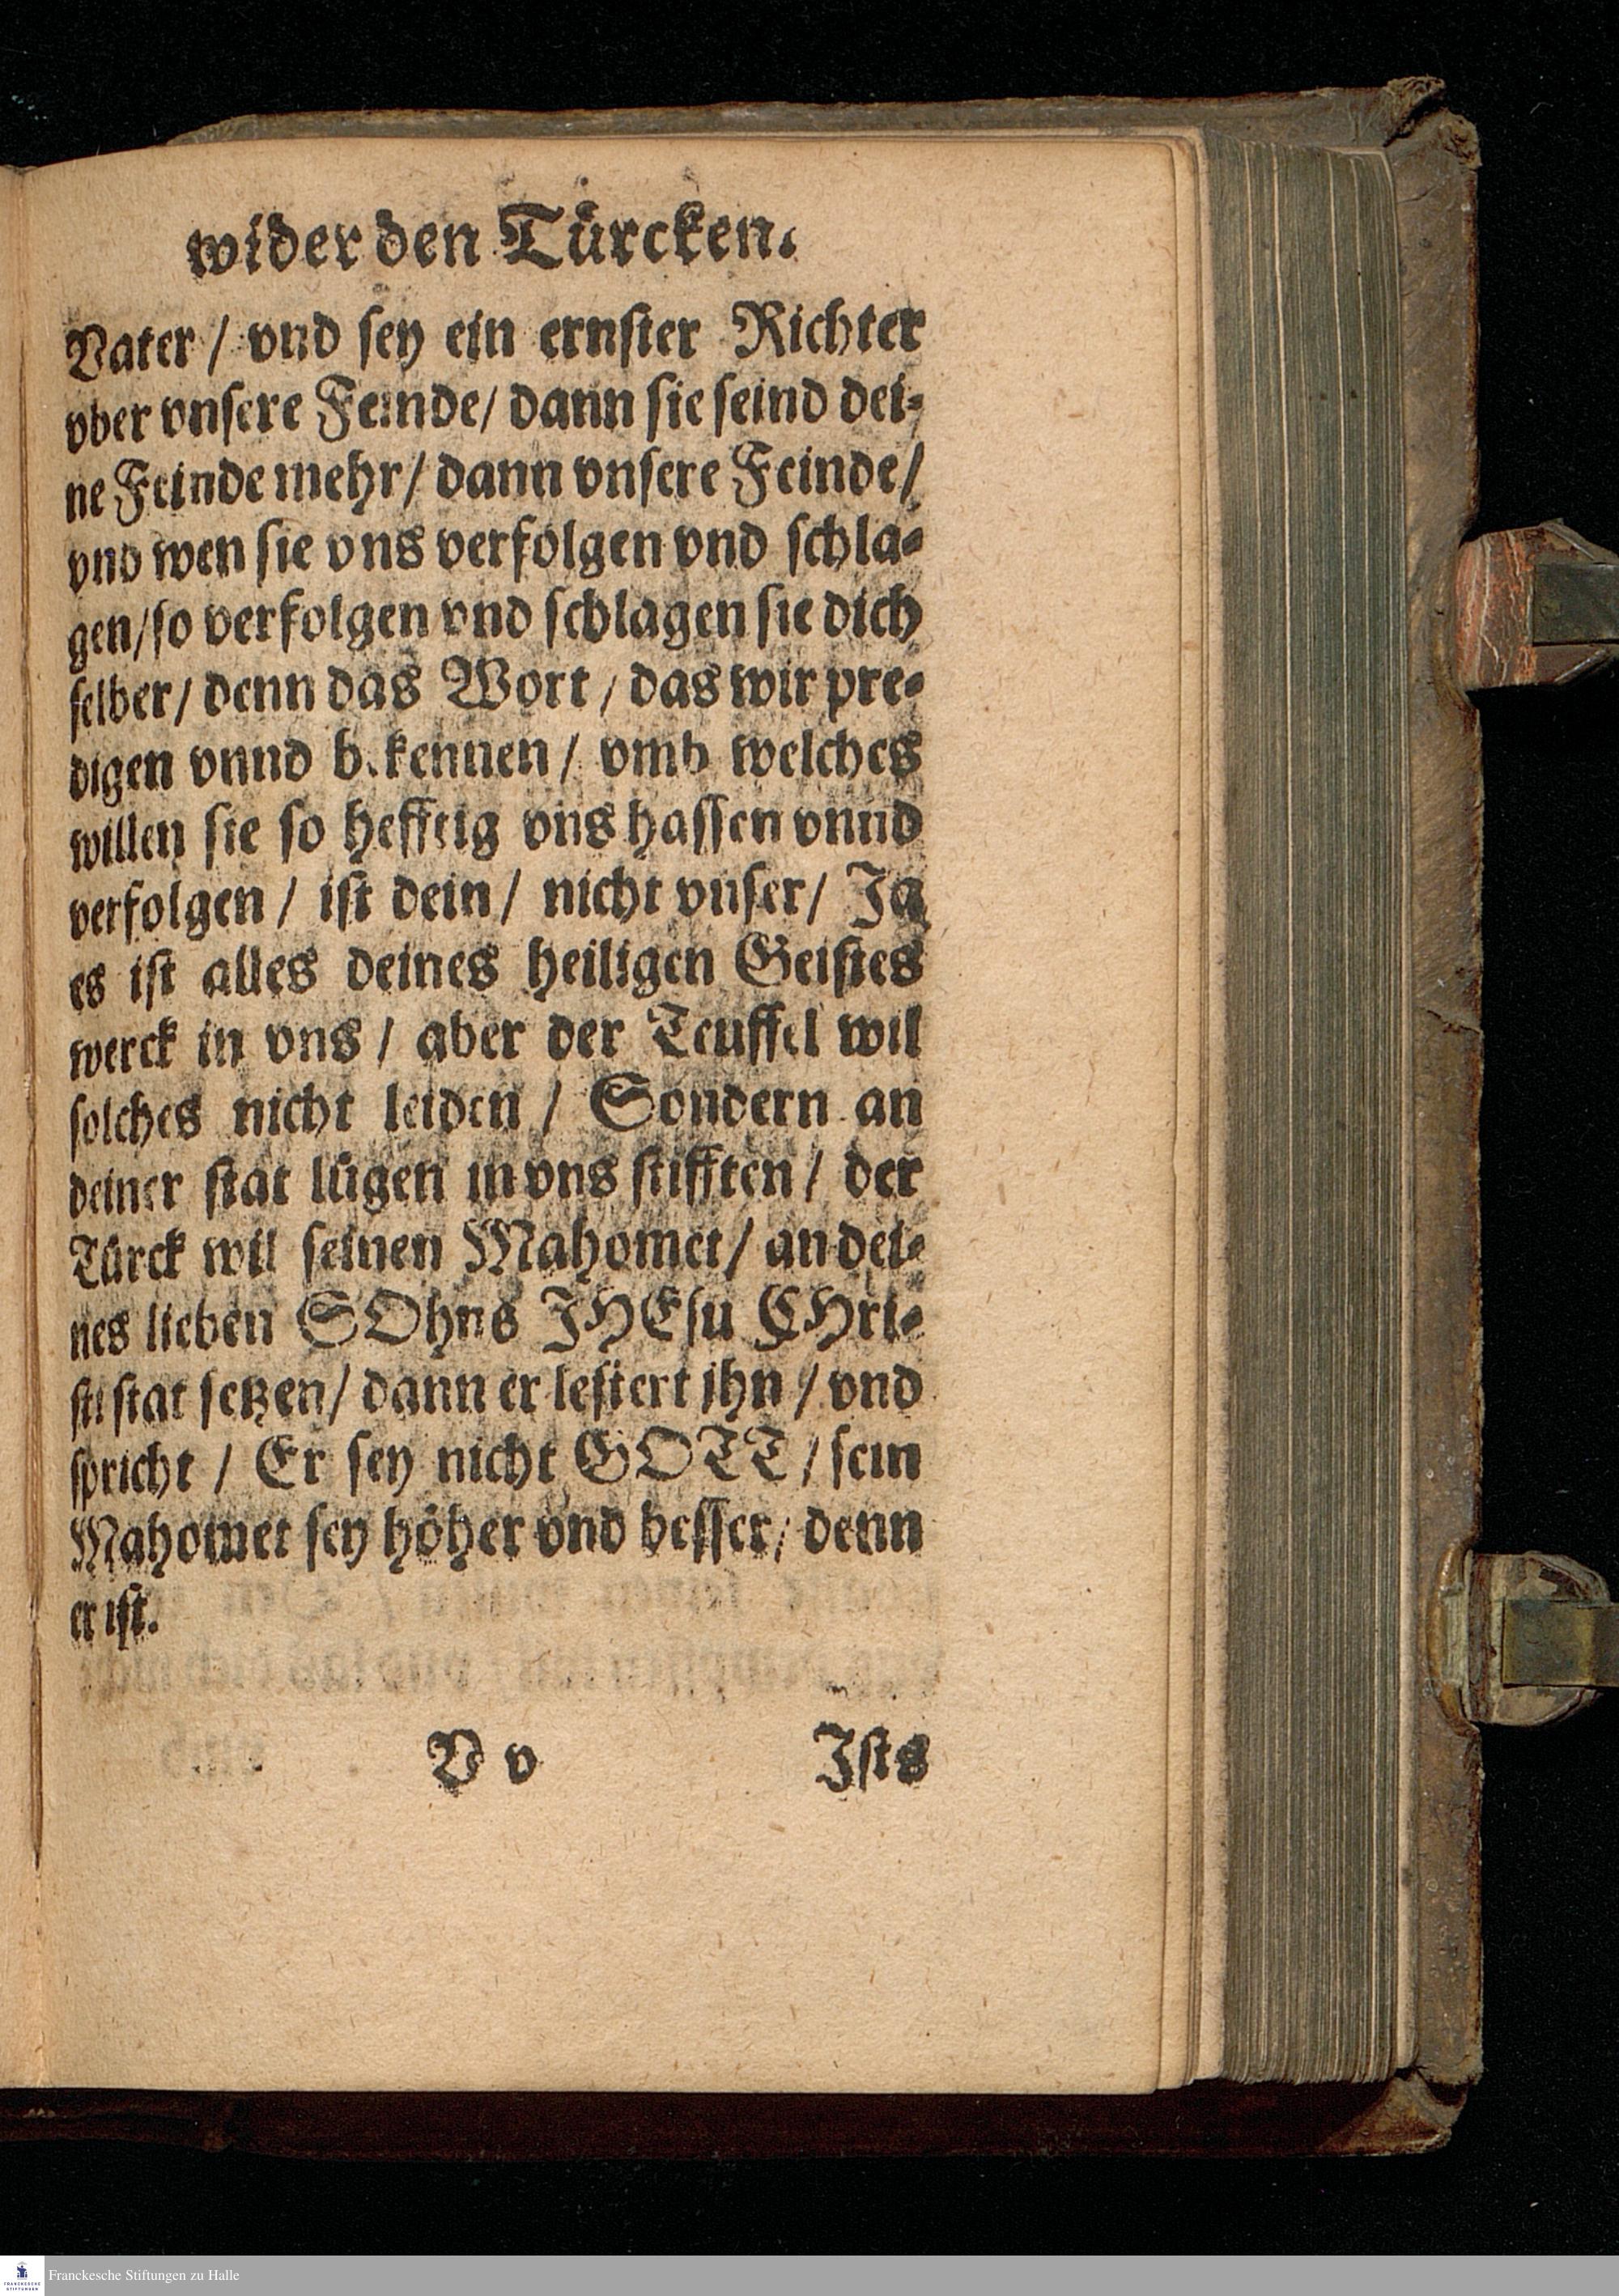 wider den Tuͤrcken.
Vater / vnd sey ein ernster Richter
vber vnsere Feinde / dann sie seind dei⸗
ne Feinde mehr / dann vnsere Feinde /
vnd wen sie vns verfolgen vnd schla⸗
gen / so verfolgen vnd schlagen sie dich
selber / denn das Wort / das wir pre⸗
digen vnnd bekennen / vmb welches
willen sie so hefftig vns hassen vnnd
verfolgen / ist dein / nicht vnser / Ja
es ist alles deines heiligen Geistes
werck in vns / aber der Teuffel wil
solches nicht leiden / Sondern an
deiner stat luͤgen in vns stifften / der
Tuͤrck wil seinen Mahomet / an dei⸗
nes lieben SOhns JHEsu CHri⸗
sti stat setzen / dann er lestert ihn / vnd
spricht / Er sey nicht GOTT / sein
Mahomet sey hoͤher vnd besser / denn
er ist.
V v Ists
Franckesche Stiftungen zu Halle